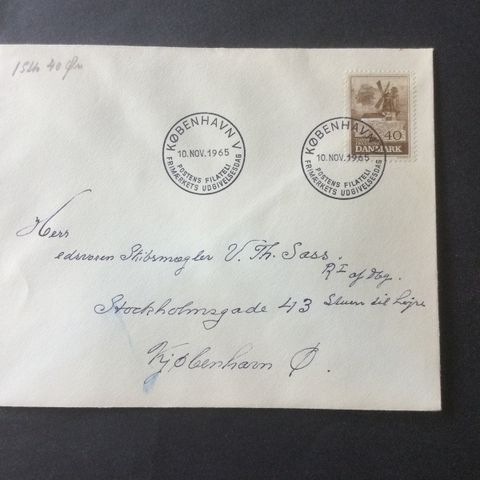 1 Stk 40 Øre
KØBENHAVN V
10.NOV.1965
POSTENS FILATELI
FRIMÆRKETS UDGIVELSESDAG
KØBENHAVN V
10.NOV.1965
POSTENS FILATELI
FRIMÆRKETS UDGIVELSESDAG
40
DANMARK
Herr
edsvoren Skibsmægler V. Th. Sass.
R I af Dbg.
Stockholmsgade 43 Stuen til højre
Kjøbenhavn Ø.